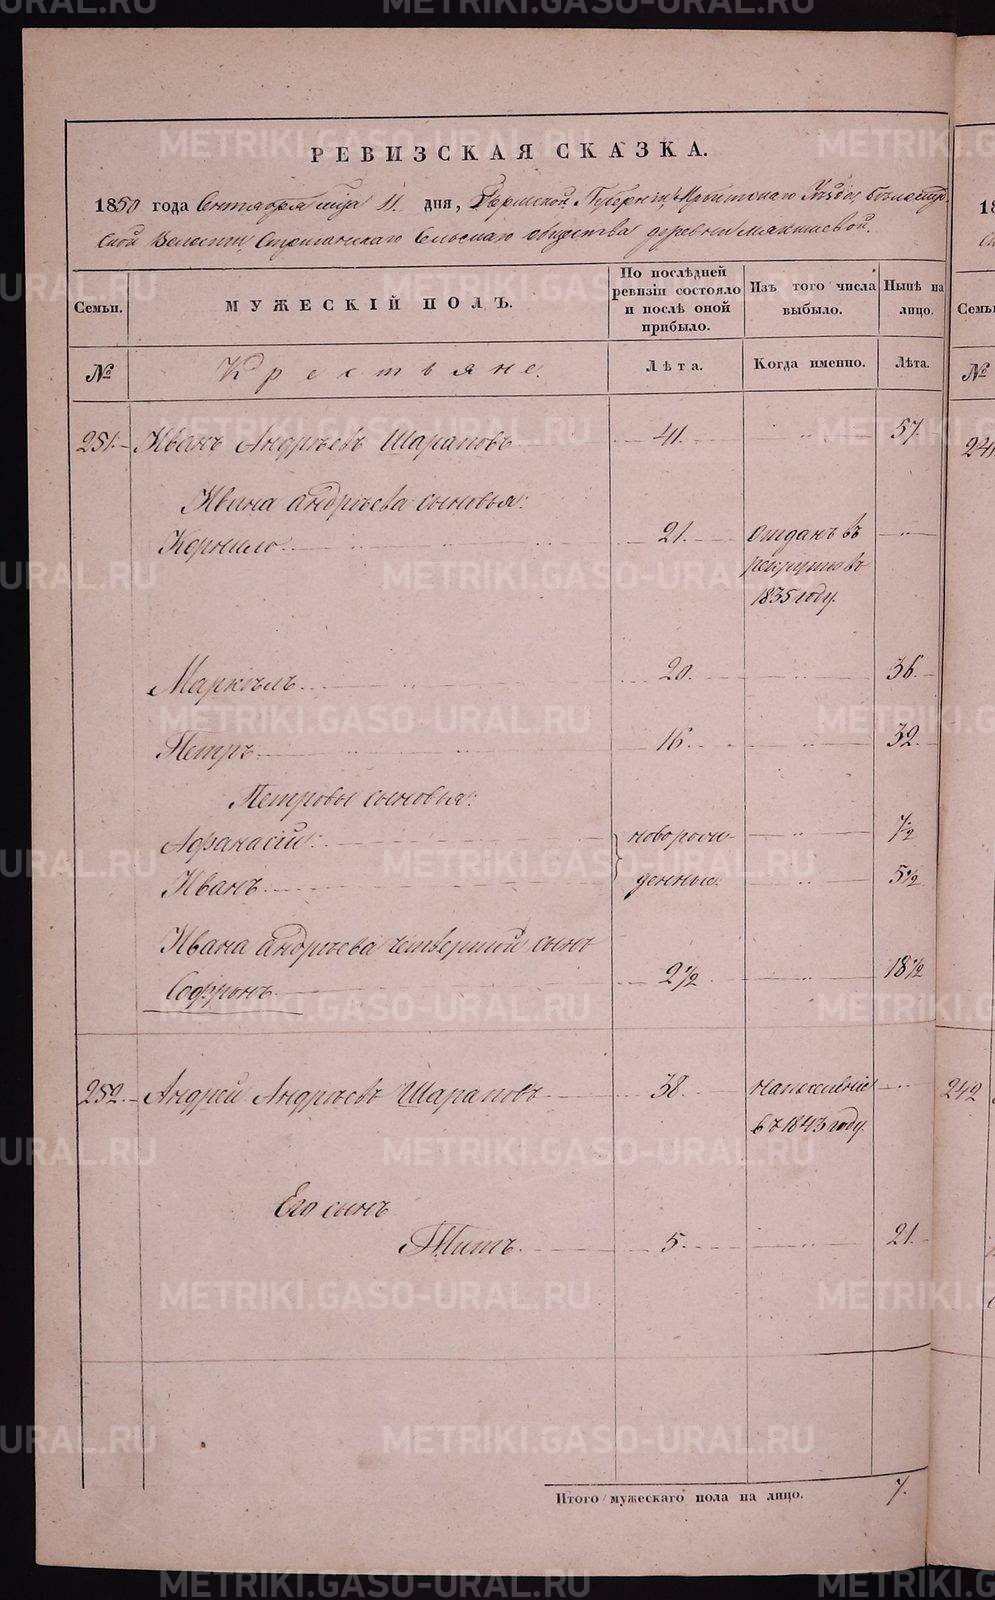 РЕВИЗСКАЯ СКАЗКА.
1850 года Сентября м-ца 11. дня, Пермской Губерніи, Ирбитскаго Уѣзда,
ской Волости, Стриганскаго Сельскаго общества деревни Мякишевой.
Семьи.
МУЖЕСКІЙ ПОЛЪ.
По послѣдней ревизіи состояло и послѣ оной прибыло.
Изъ того числа выбыло.
Нынѣ на лицо.
№
Крестьяне.
Лѣта.
Когда именно.
Лѣта.
251. Иванъ Андрѣевъ Шараповъ 41. 57.
Ивана андрѣева сыновья:
Корнило 21. отданъ въ
рекруты въ
1835 году.
Маркелъ 20. 36.
Петръ 16. 32.
Петровы сыновья:
Афанасій: новорож- 7 1/2
Иванъ денные. 5 1/2
Ивана андрѣева четвертый сынъ
Софронъ 2 1/2 18 1/2
252. Андрей Андрѣевъ Шараповъ 38.
въ 1843 году.
Его сынъ
Титъ. 5. 21.
Итого мужескаго пола на лицо. 7.
18
Семьи
№
241
242
METRIKI.GASO-URAL.RU